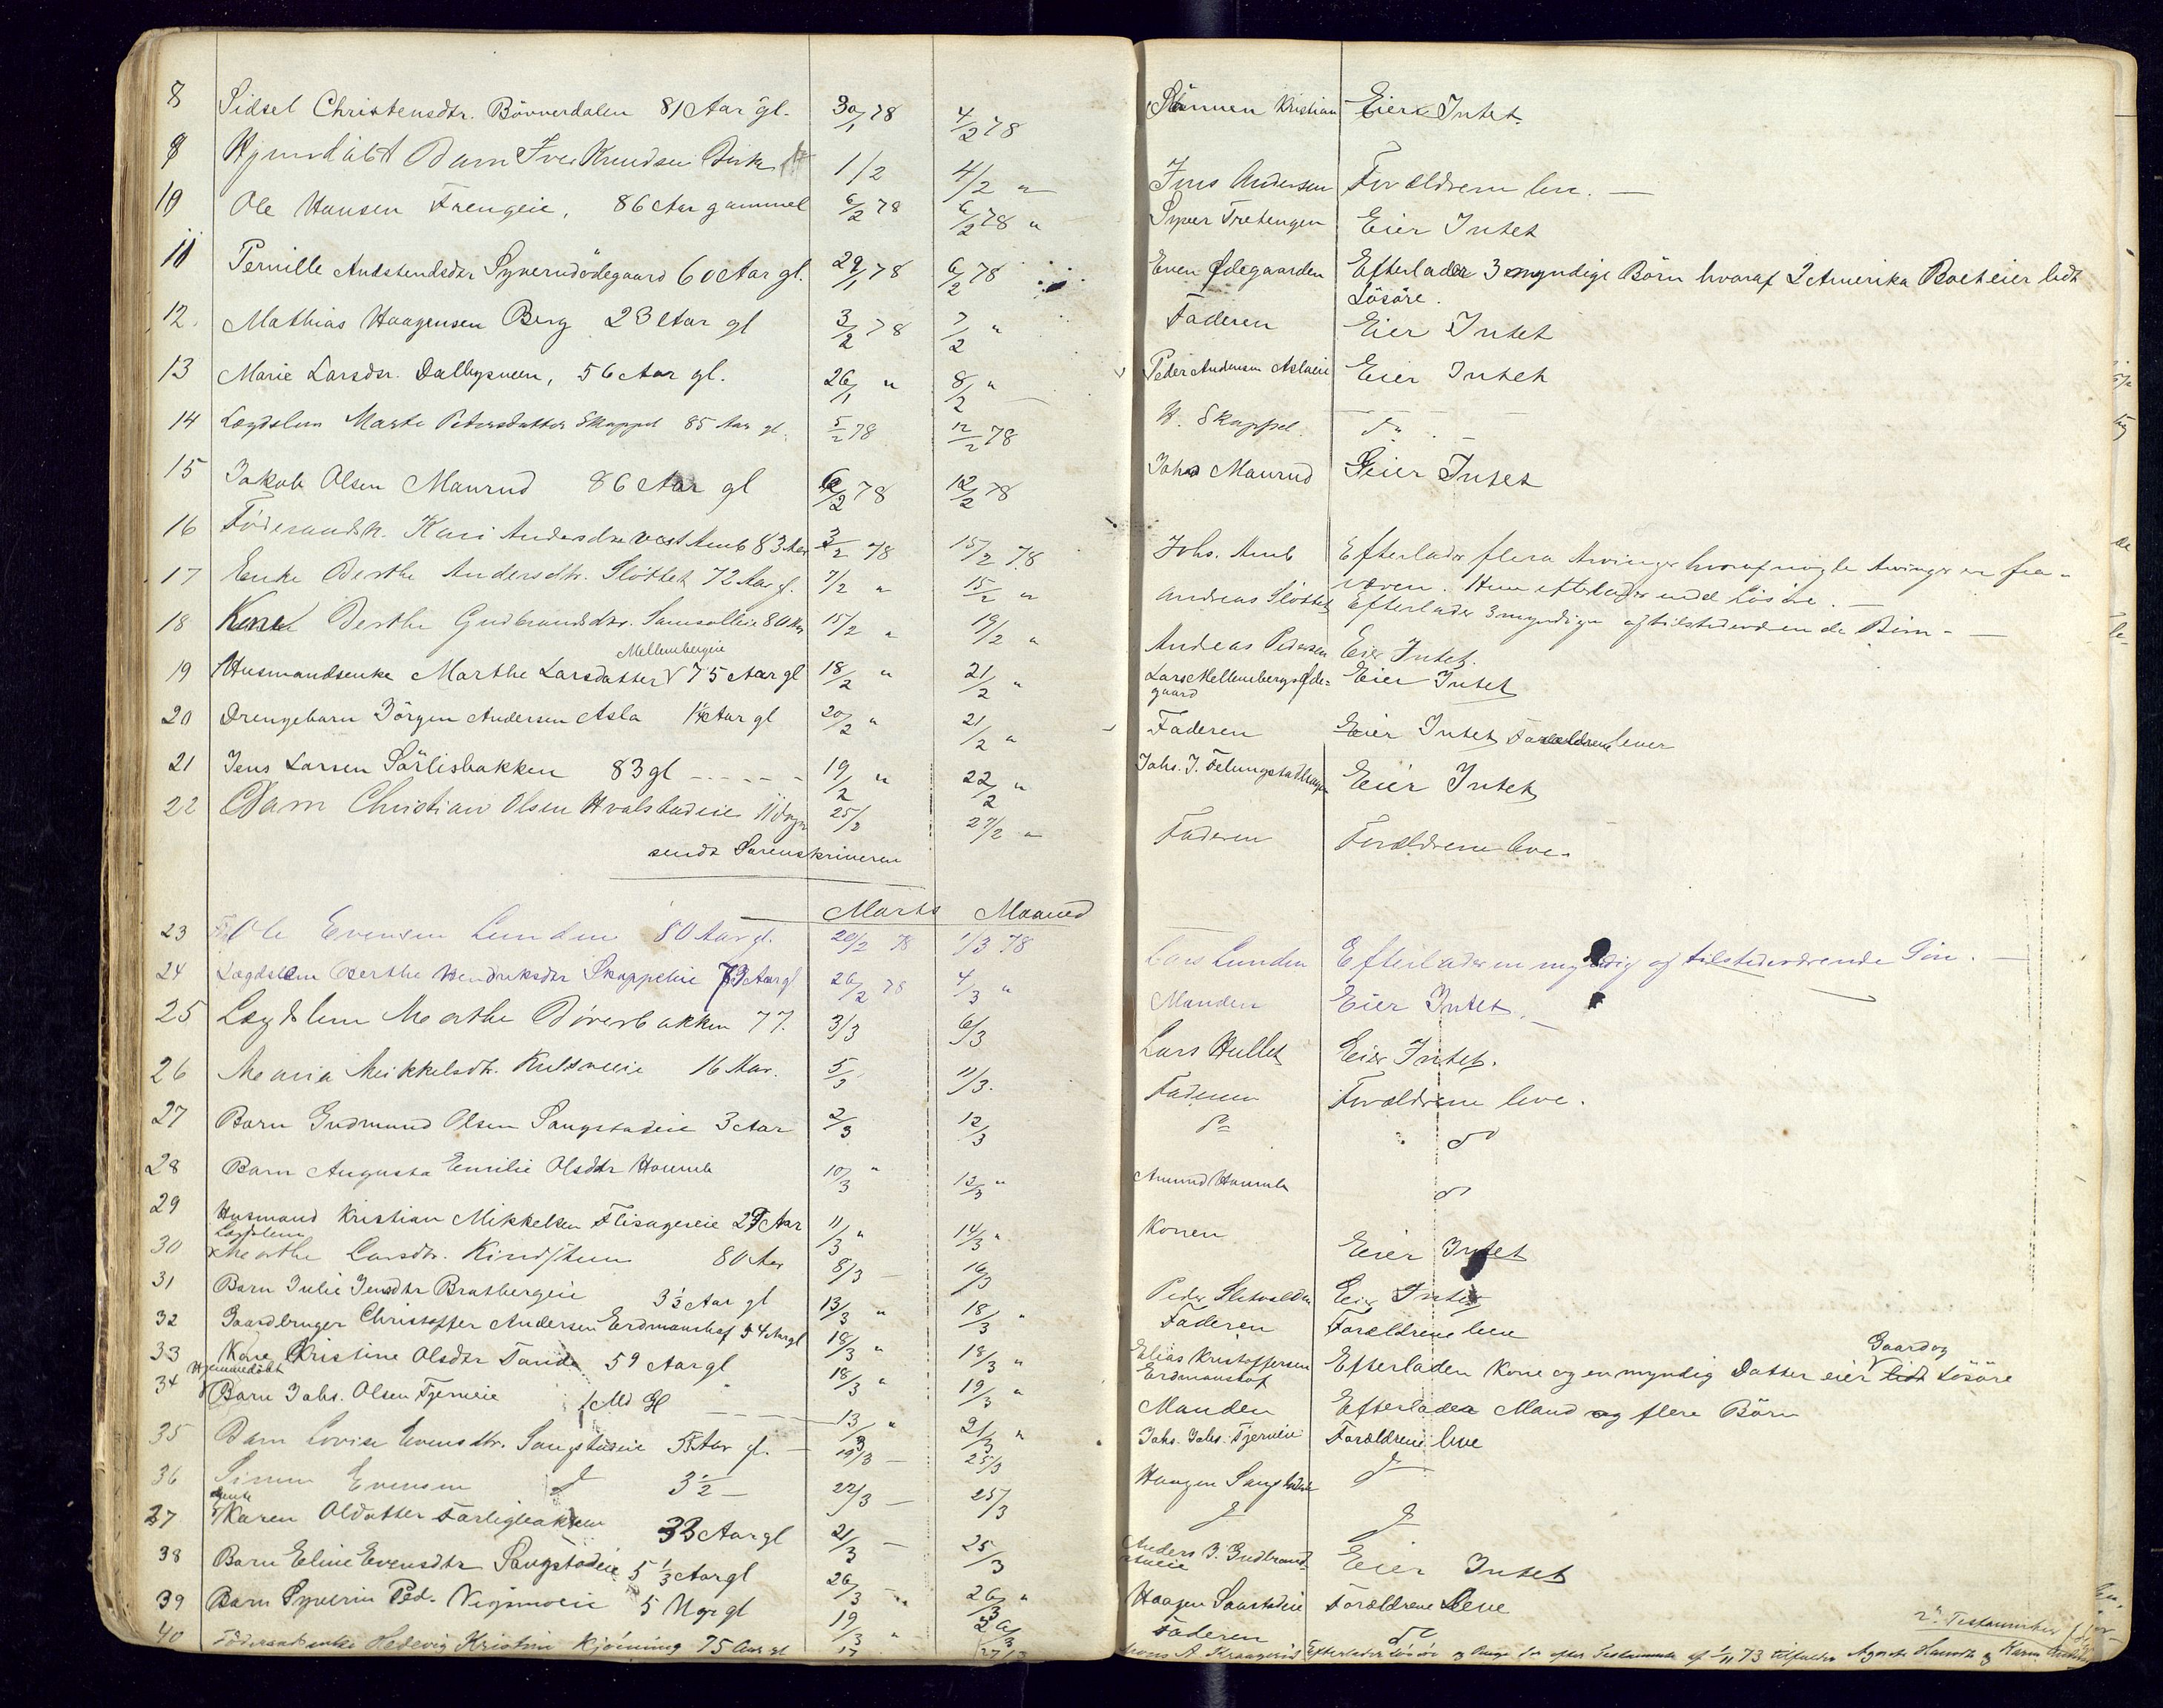 8 Sidsel Christensdtr. Bövverdalen 81 Aar gl. 30/1 78 4/2 78 Sönnen Kristian Eier Intet.
9 Hjemdöbt Barn Iver Knudsen 1/2 4/2 " Jens Andersen Forældrene leve. —
10 Ole Hansen Frengeie, 86 Aar gammel 6/2 78 6/2 78 " Syver Tretengen Eier Intet
11 Pernille Andstendsdtr Syverudödegaard 60 Aar gl. 29/1 78 6/2 78 Even Ødegaarden Efterlader 3 myndige Börn hvoraf 2 Amerika Boet eier lidt
Lösöre.
12. Mathias Haagensen Berg 23 Aar gl 3/2 78 7/2 " Faderen Eier Intet
13 Marie Larsdtr. Dalbysveen, 56 Aar gl. 26/1 " 8/2 " Peder Andersen Aslaeie Eier Intet
14 Lægdslem Marte Pedersdatter Skappel 85 Aar gl. 5/2 78 12/2 78 H. Skappel. do
15 Jakob Olsen Maurud 86 Aar gl 6/2 78 12/2 78 Johs Maurud Eier Intet
16 Föderaadsk. Kari Andersdtr vest Amb 83 Aar 3/2 78 15/2 78 Johs. Amb Efterlader flere Arvinger hvoraf nogle Arvinger er fra-
væren. Hun efterlader endel Lösöre. —
17 Enke Berthe Andersdtr. Slöttet 72 Aar gl. 7/2 " 15/2 " Andreas Slöttet Efterlader 3 myndige og tilstedeværende Börn. —
18 Kone Berthe Gudbrandsdtr. 80 Aar 15/2 " 19/2 " Andreas Pedersen Eier Intet.
Mellembergeie
19 Husmandsenke Marthe Larsdatter 75 Aar gl 18/2 " 21/2 " Lars Mellembergsøde= Eier Intet
gaard
20 Drengebarn Jörgen Andersen Asla 1¼ Aar gl 20/2 " 21/2 " Faderen Eier Intet Forældrene lever
21 Jens Larsen Sörlisbakken 83 gl - - - - - 19/2 " 22/2 " Johs. J. Eier Intet
22 Barn Christian Olsen Hvalstadeie 11 dage 25/2 27/2 " Faderen Forældrene leve.
sendt Sorenskriveren
Marts Maaned
23 Ole Evensen Lunden 80 Aar gl. 20/2 78 1/3 78 Lars Lunden Efterlader en myndig og tilstedeværende Sön. —
24 Lægdslem Berthe Hendriksdtr Skappeleie 73 Aar gl 26/2 78 4/3 " Manden Eier Intet. —
25 Lægdslem Marthe 77. 3/3 6/3 Lars Hullet Eier Intet.
26 Maria Mikkelsdtr. 16 Aar. 5/3 11/3. Faderen Forældrene leve.
27 Barn Gudmund Olsen Sangstadeie 3 Aar 2/3 12/3 do do
28 Barn Augusta Emilie Olsdtr Haumb 10/3 " 13/3 " Amund Haumb do
29 Husmand Kristian Mikkelsen 29 Aar 11/3 " 14/3 " Konen Eier Intet
Lægdslem
30 Marthe Larsdtr. 80 Aar 8/3 — 16/3 Peder Eier Intet
31 Barn Julie Jensdtr Bratbergeie 3½ Aar gl 13/3 " 18/3 " Faderen Forældrene leve
32 Gaardbruger Christoffer Andersen Erdmanshof 54 Aar gl 18/3 " 18/3 " Elias Kristoffersen Erdmanshof Efterlader Kone og en myndig Datter eier Gaard og lidt Lösöre
33 Kone Kristine Olsdtr Tande 59 Aar gl 18/3 " 19/3 " Manden Efterlader Mand og flere Börn
Hjemmedöbt
34 Barn Johs. Olsen Fjerneie 1 Md gl — 13/3 " 21/3 " Johs. Johs. Fjerneie Forældrene leve
35 Barn Lovise Evensdtr. Sangstadeie 5 Aar gl. — 19/3 — 25/3 Haagen Sangstadeie do
36 Simen Evensen do 3½ — 22/3 — 25/3 do do
37 Karen Olsdatter 33 Aar gl 21/3 — 25/3 Anders J. Eier Intet
38 Barn Eline Evensdtr Sangstadeie 5 1/3 Aar gl 26/3 " 26/3 " Haagen Sangstadeie Forældrene Leve
39 Barn Syverin Ped. 5 Uger gl 19/3 " 26/3 Faderen do
40 Föderaadsenke Hedevig Kristine Kjönning 75 Aar gl 27/3 Efterlader Lösöre og Penge der efter Testamente af 1/11 73 tilfalder